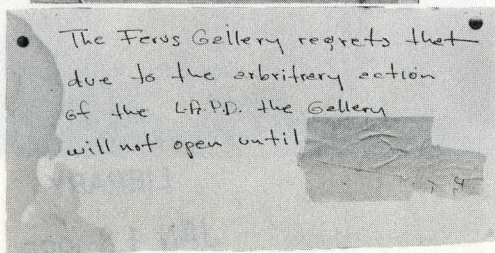 The Ferus Gallery regrets that
due to the arbritrary action
of the L.A.P.D. the Gallery
will not open until